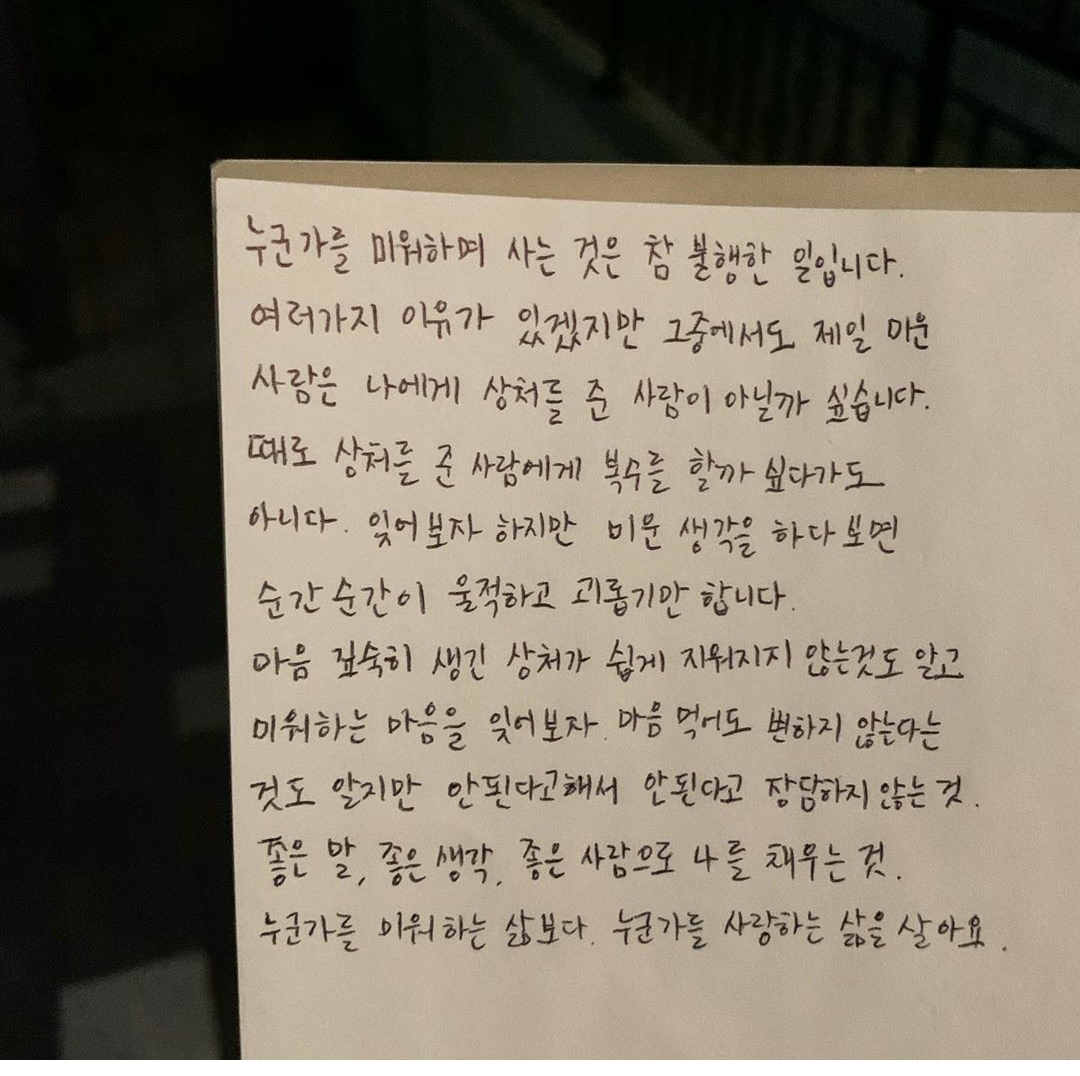 누군가를 미워하며 사는 것은 참 불행한 일입니다.
여러가지 이유가 있겠지만 그중에서도 제일 미운
사람은 나에게 상처를 준 사람이 아닐까 싶습니다.
때로 상처를 준 사람에게 복수를 할까 싶다가도
아니다. 잊어보자 하지만 미운 생각을 하다보면
순간순간이 울적하고 괴롭기만 합니다.
마음 깊숙히 생긴 상처가 쉽게 지워지지 않는것도 알고
미워하는 마음을 잊어보자. 마음 먹어도 변하지 않는다는
것도 알지만 안된다고해서 안된다고 장담하지 않는 것.
좋은 말, 좋은 생각, 좋은 사람으로 나를 채우는 것.
누군가를 미워하는 삶보다. 누군가를 사랑하는 삶을 살아요.